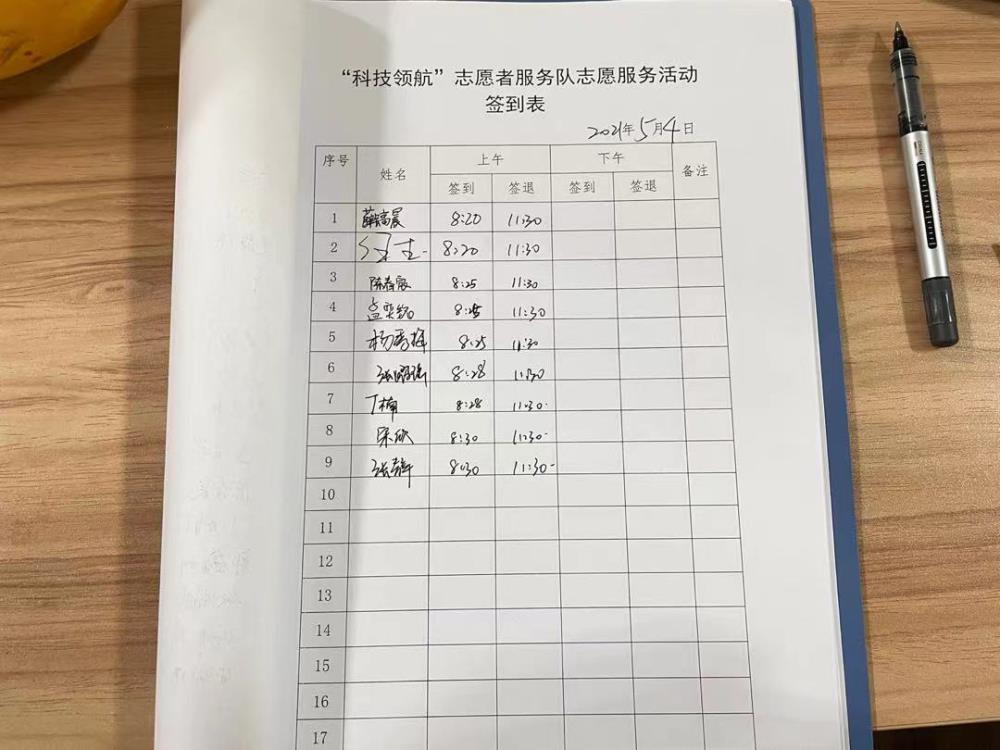 “科技领航”志愿者服务队志愿服务活动
签到表
2021年5月4日
序号 姓名 上午 下午 备注
签到 签退 签到 签退
1 薛高晨 8:20 11:30
2 8:20 11:30
3 陈春晨 8:25 11:30
4 8:25 11:30
5 杨秀梅 8:25 11:30
6 8:28 11:30
7 丁楠 8:28 11:30
8 宋欣 8:30 11:30
9 张静 8:30 11:30
10
11
12
13
14
15
16
17